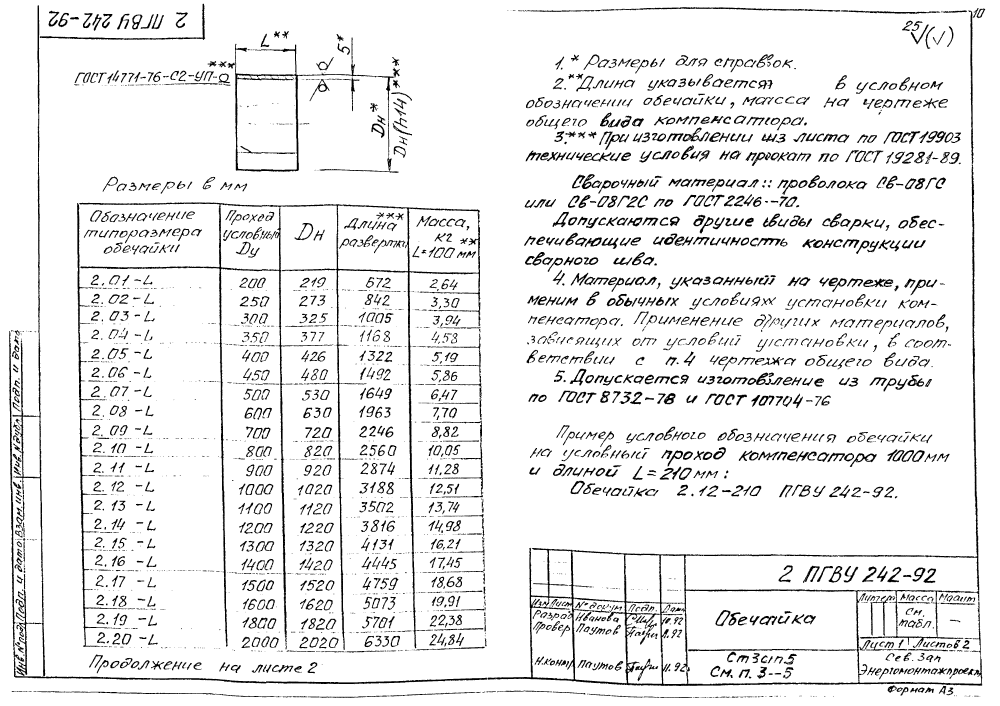 2 ПГВУ 242-92
10
25 √(√)
L**
5*
ГОСТ 14771-76-С2-УП-О ***
Dн*
Dн(h14)***
Размеры в мм
Обозначение типоразмера обечайки | Проход условный Dу | Dн | Длина*** развертки | Масса, кг L=100** мм
2.01-L 200 219 672 2,64
2.02-L 250 273 842 3,30
2.03-L 300 325 1005 3,94
2.04-L 350 377 1168 4,58
2.05-L 400 426 1322 5,19
2.06-L 450 480 1492 5,86
2.07-L 500 530 1649 6,47
2.08-L 600 630 1963 7,70
2.09-L 700 720 2246 8,82
2.10-L 800 820 2560 10,05
2.11-L 900 920 2874 11,28
2.12-L 1000 1020 3188 12,51
2.13-L 1100 1120 3502 13,74
2.14-L 1200 1220 3816 14,98
2.15-L 1300 1320 4131 16,21
2.16-L 1400 1420 4445 17,45
2.17-L 1500 1520 4759 18,68
2.18-L 1600 1620 5073 19,91
2.19-L 1800 1820 5701 22,38
2.20-L 2000 2020 6330 24,84
Продолжение на листе 2
1.* Размеры для справок.
2.** Длина указывается в условном
обозначении обечайки, масса на чертеже
общего вида компенсатора.
3.*** При изготовлении из листа по ГОСТ 19903
технические условия на прокат по ГОСТ 19281-89.
Сварочный материал: проволока Св-08ГС
или Св-08Г2С по ГОСТ 2246-70.
Допускаются другие виды сварки, обес-
печивающие идентичность конструкции
сварного шва.
4. Материал, указанный на чертеже, при-
меним в обычных условиях установки ком-
пенсатора. Применение других материалов,
зависящих от условий установки, в соот-
ветствии с п.4 чертежа общего вида.
5. Допускается изготовление из трубы
по ГОСТ 8732-78 и ГОСТ 10704-76
Пример условного обозначения обечайки
на условный проход компенсатора 1000 мм
и длиной L=210 мм:
Обечайка 2.12-210 ПГВУ 242-92.
2 ПГВУ 242-92
Изм Лист № докум. Подп. Дата
Разраб Иванова 10.92
Провер Паутов 11.92
Н.контр Паутов 11.92
Обечайка
Литер. Масса Масшт
См. табл. –
Лист 1 Листов 2
Ст3сп5
См. п. 3--5
Сев. Зап
Энергомонтажпроект
Формат А3
Инв. № подл. Подп. и дата Взам. инв. Инв. № дубл. Подп. и дата